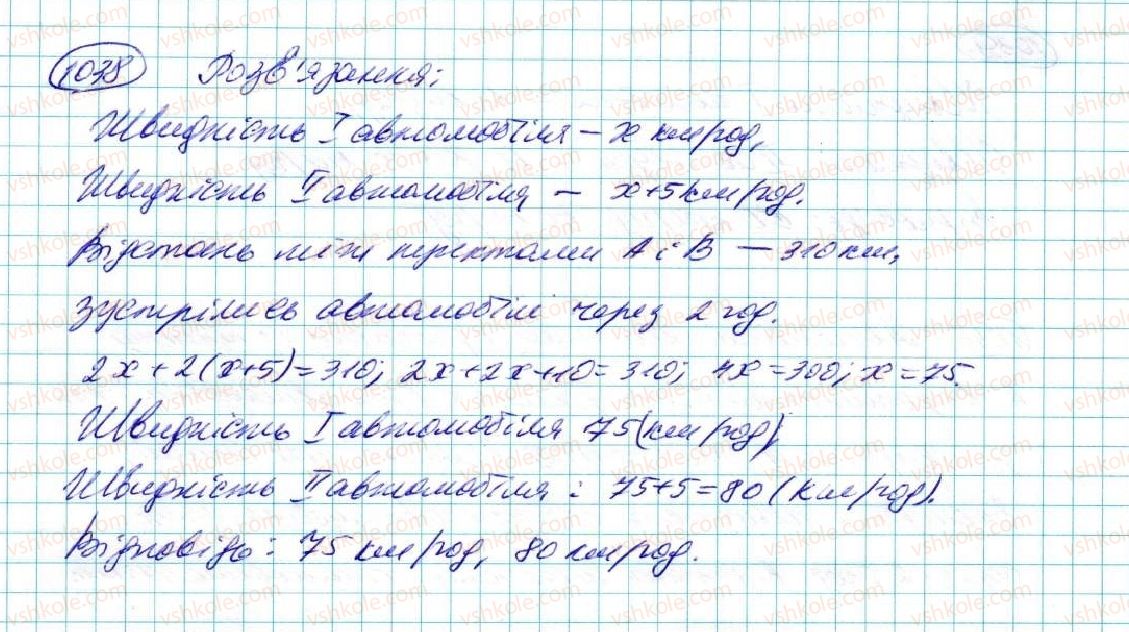 1038 Розв'язання:
Швидкість I автомобіля – x км/год,
Швидкість II автомобіля – x+5 км/год.
Відстань між пунктами A і B – 310 км,
зустрілись автомобілі через 2 год.
2x+2(x+5)=310; 2x+2x+10=310; 4x=300; x=75.
Швидкість I автомобіля 75 (км/год),
Швидкість II автомобіля: 75+5=80 (км/год).
Відповідь: 75 км/год, 80 км/год.